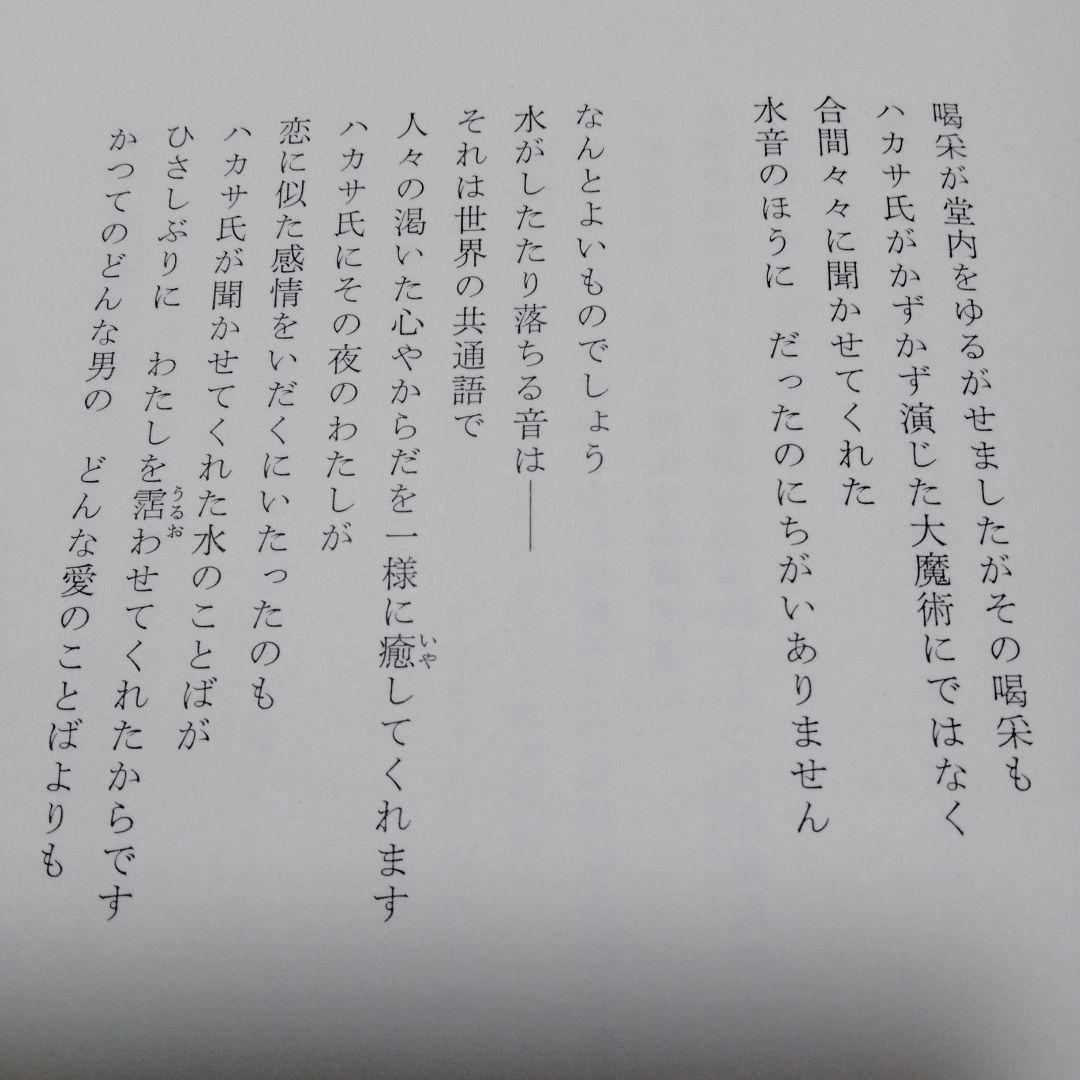 喝采が堂内をゆるがせましたがその喝采も
ハカサ氏がかずかず演じた大魔術にではなく
合間々々に聞かせてくれた
水音のほうに　だったのにちがいありません
なんとよいものでしょう
水がしたたり落ちる音は――
それは世界の共通語で
人々の渇いた心やからだを一様に癒してくれます
いや
ハカサ氏にその夜のわたしが
恋に似た感情をいだくにいたったのも
ハカサ氏が聞かせてくれた水のことばが
ひさしぶりに　わたしを霑わせてくれたからです
うるお
かつてのどんな男の　どんな愛のことばよりも